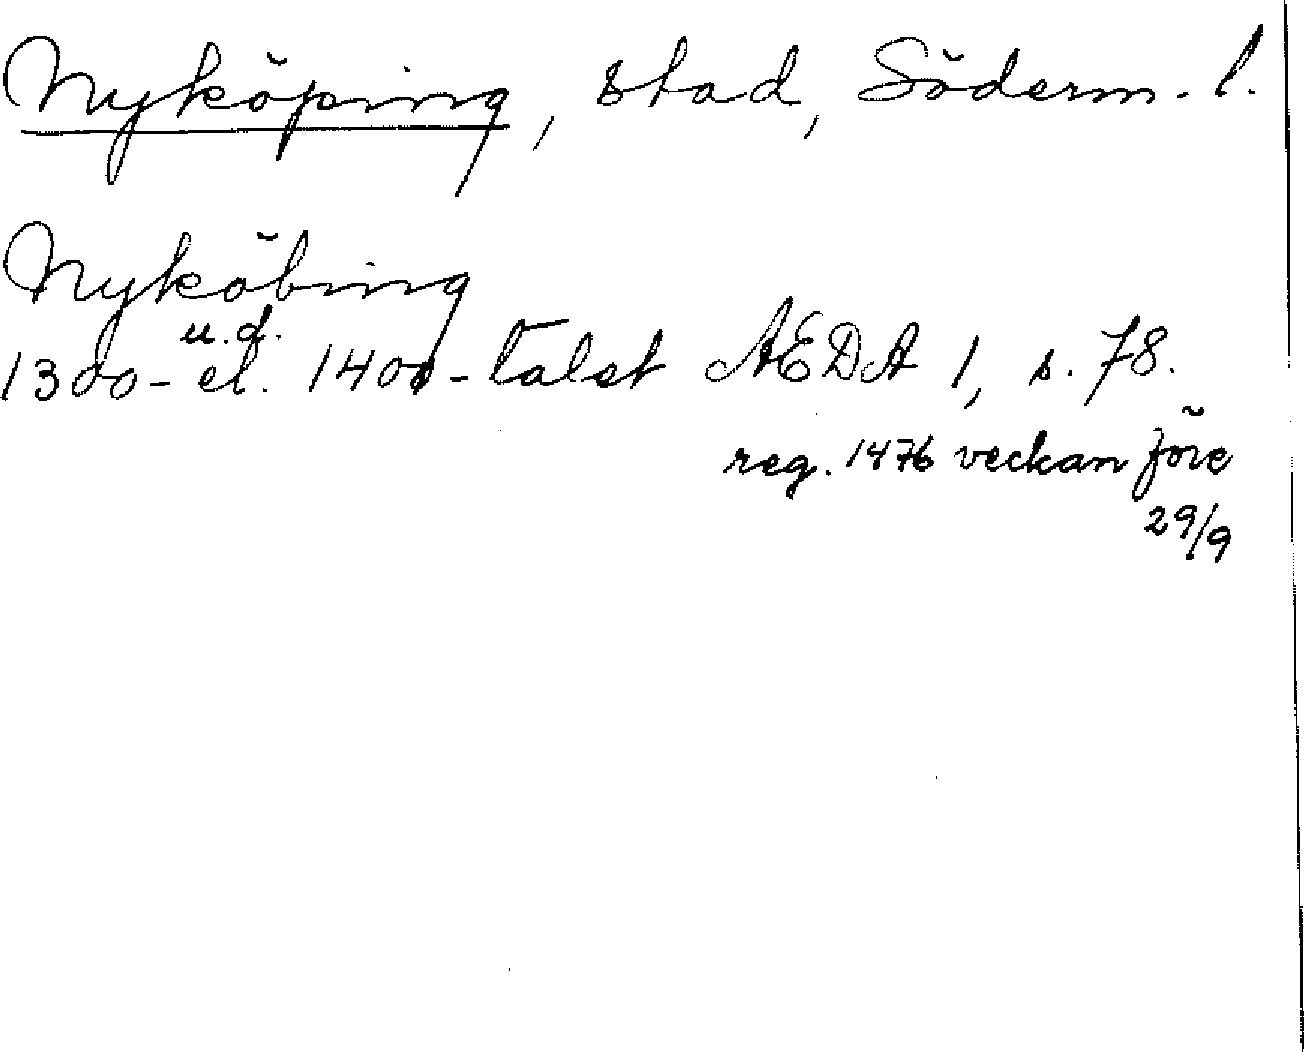 Nyköping, stad, Söderm. l.
Nyköbing
u.d.
1300- el. 1400-talet AEDA 1, s. 78.
reg. 1476 veckan före
29/9